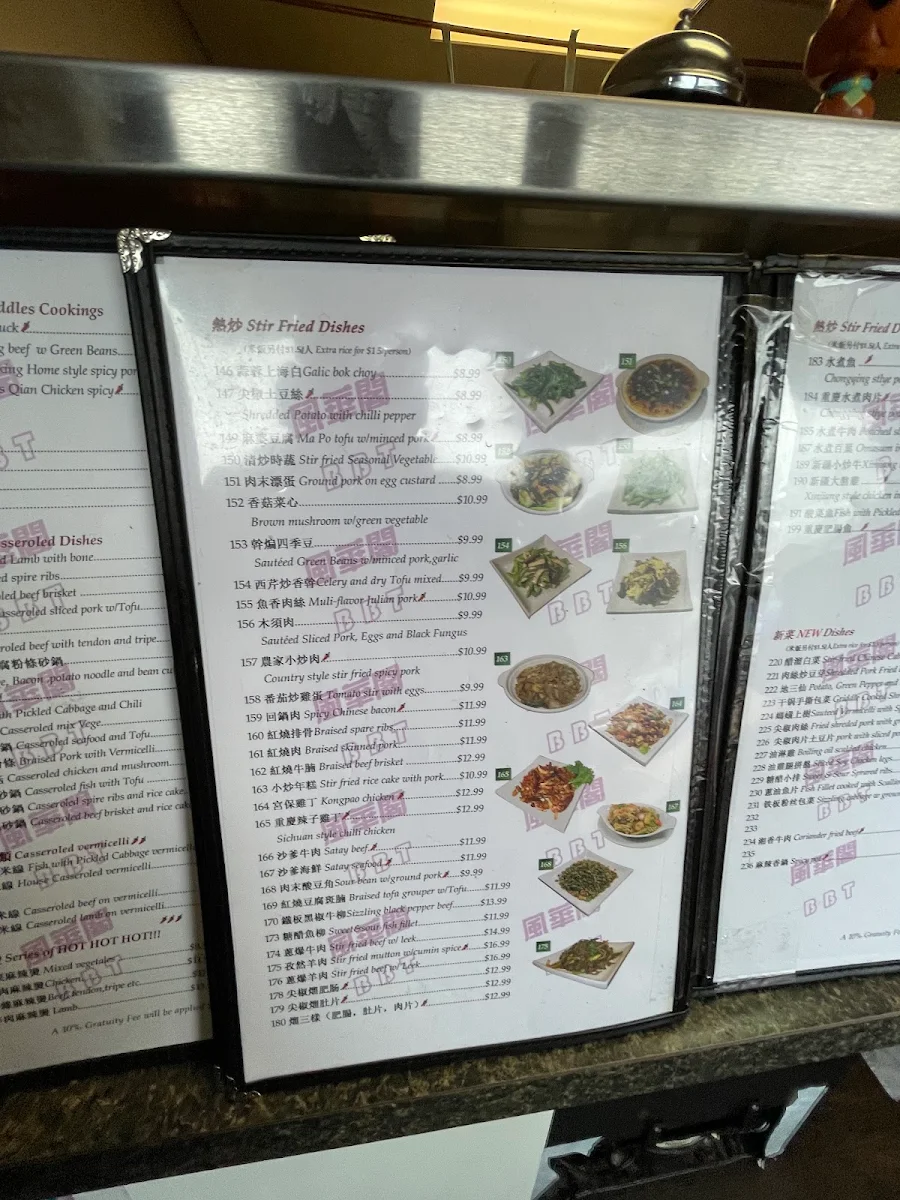 ddles Cookings
uck
g beef w Green Beans
ing Home style spicy por
s Qian Chicken spicy
sseroled Dishes
d Lamb with bone
ed spire ribs
led beef brisket
asseroled sliced pork w/Tofu
roled beef with tendon and tripe
腐粉條砂鍋
e, Bacon ,potato noodle and bean cu
th Pickled Cabbage and Chili
Casseroled mix Vege
鍋 Casseroled seafood and Tofu
條 Braised Pork with Vermicelli
Casseroled chicken and mushroom
砂鍋 Casseroled fish with Tofu
砂鍋 Casseroled spire ribs and rice cake
砂鍋 Casseroled beef brisket and rice cak
Casseroled vermicelli
米線 Fish with Pickled Cabbage vermicell
線 House Casseroled vermicelli
米線 Casseroled beef on vermicelli
線 Casseroled lamb on vermicelli
Series of HOT HOT HOT!!!
麻辣燙 Mixed vegetable
肉麻辣燙 Chicken
麻辣燙 Beef, tendon, tripe etc.
肉麻辣燙 Lamb
A 10% Gratuity Fee will be applie
熱炒 Stir Fried Dishes
(米飯另付$1.5/人 Extra rice for $1.5/person)
146 蒜蓉上海白 Galic bok choy $8.99
147 尖椒土豆絲 $8.99
Shredded Potato with chilli pepper
149 麻婆豆腐 Ma Po tofu w/minced pork $8.99
150 清炒時蔬 Stir fried Seasonal Vegetable $10.99
151 肉末燉蛋 Ground pork on egg custard $8.99
152 香菇菜心 $10.99
Brown mushroom w/green vegetable
153 幹煸四季豆 $9.99
Sautéed Green Beans w/minced pork,garlic
154 西芹炒香幹 Celery and dry Tofu mixed $9.99
155 魚香肉絲 Muli-flavor Julian pork $10.99
156 木須肉 $9.99
Sautéed Sliced Pork, Eggs and Black Fungus
157 農家小炒肉 $10.99
Country style stir fried spicy pork
158 番茄炒雞蛋 Tomato stir with eggs $9.99
159 回鍋肉 Spicy Chinese bacon $11.99
160 紅燒排骨 Braised spare ribs $11.99
161 紅燒肉 Braised skinned pork $11.99
162 紅燒牛腩 Braised beef brisket $12.99
163 小炒年糕 Stir fried rice cake with pork $10.99
164 宮保雞丁 Kongpao chicken $12.99
165 重慶辣子雞丁 $12.99
Sichuan style chilli chicken
166 沙爹牛肉 Satay beef $11.99
167 沙爹海鮮 Satay seafood $11.99
168 肉末酸豆角 Sour bean w/ground pork $9.99
169 紅燒豆腐斑腩 Braised tofu grouper w/Tofu $11.99
170 鐵板黑椒牛柳 Sizzling black pepper beef $13.99
173 糖醋魚柳 Sweet&sour fish fillet $11.99
174 蔥爆牛肉 Stir fried beef w/ leek $14.99
175 孜然羊肉 Stir fried mutton w/cumin spice $16.99
176 蔥爆羊肉 Stir fried beef w/ $16.99
178 尖椒爆肥腸 $12.99
179 尖椒爆肚片 $12.99
180 爆三樣 (肥腸, 肚片, 肉片) $12.99
151
154
156
163
164
165
167
168
175
風華閣
BBT
熱炒 Stir Fried D
183 水煮魚
Chongqing sthye po
184 重慶水煮肉片
185 水煮牛肉
187 水煮百葉 Omasum
189 新疆小炒牛
190 新疆大盤雞
Xinjiang style chicken
191 酸菜魚 Fish with Pickled
199 重慶肥腸魚
新菜 NEW Dishes
220 醋溜白菜 Stir fried Chinese Cab
221 肉絲炒豆芽 Shredded Pork Fried
222 地三仙 Potato, Green Pepper and
223 干锅手撕包菜 Griddle Cooked Shr
224 螞蟻上樹 Sauteed Vermicelli with Sp
225 尖椒肉絲 Fried shreded pork with gr
226 尖椒肉片土豆片 pork with sliced po
227 油淋雞 Boiling oil scalded chicken
228
229 糖醋小排 Sweet & Sour Sprared ribs
230 蔥油魚片 Fish Fillet cooked with Scall
231 铁板粉丝包菜 Sizzling cabbage w grou
232
233
234 香牛肉 Coriander fried beef
235
236 麻辣香鍋
A 10% Gratuity Fe